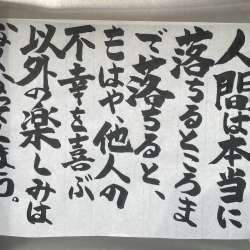 人間は本当に
落ちるところま
で落ちると、
もはや、他人の
不幸を喜ぶ
以外の楽しみは